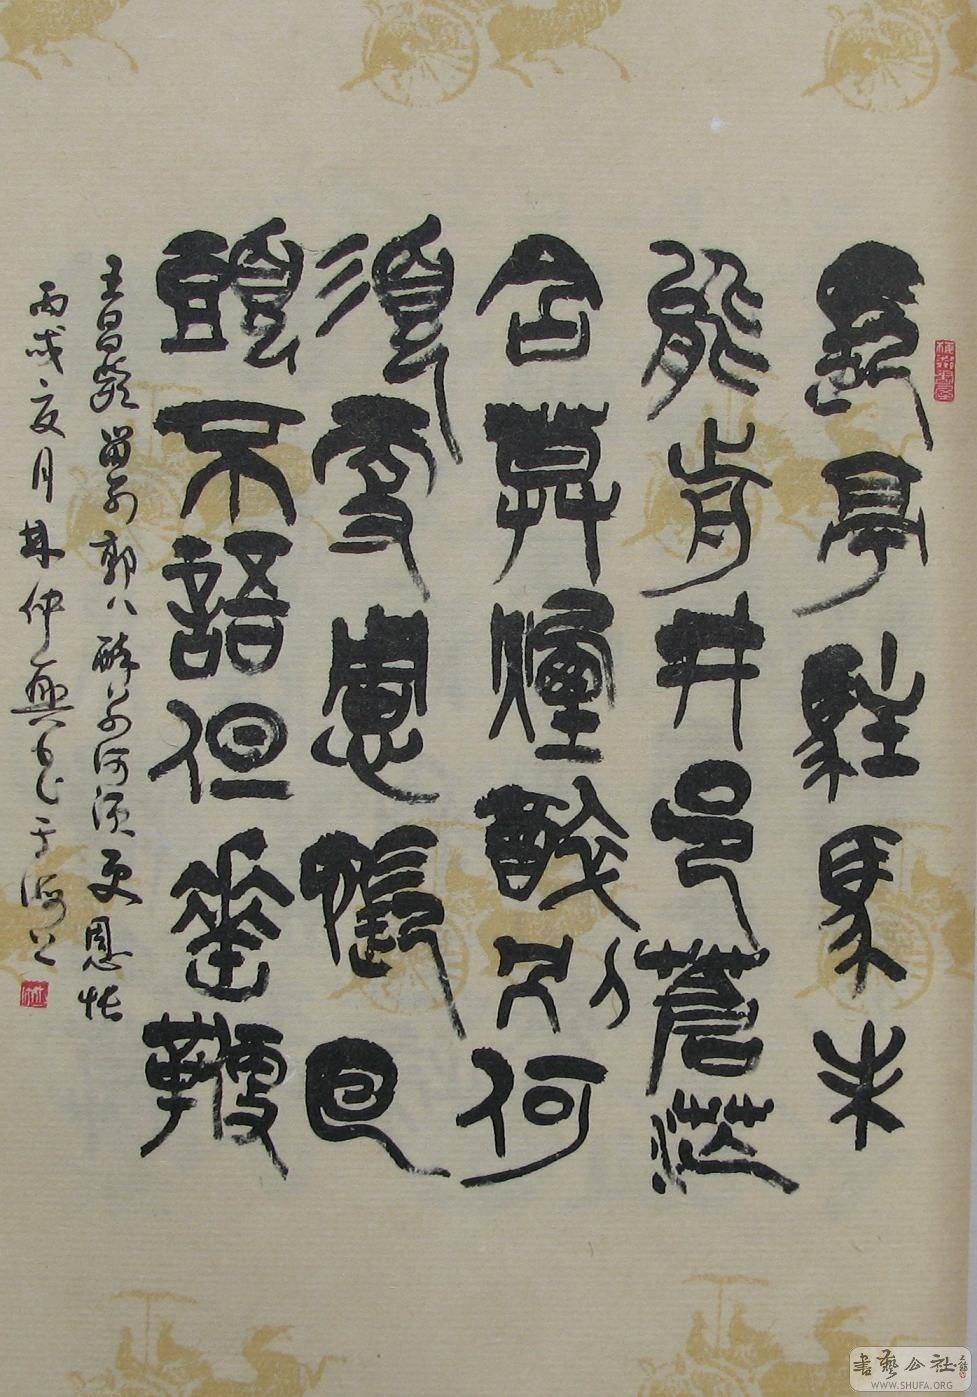 長亭駐馬未
能前井邑蒼茫
含莫煙醉別何
須悵回
頭不語但垂鞭
王昌齡留別郭八醉別何須更悵
丙戌夏月林仲興書于海上
書藝公社
WWW.SHUFA.ORG